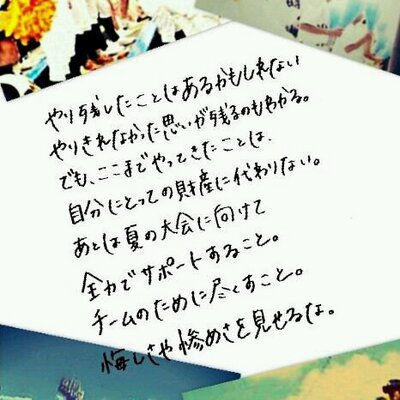 やり残したことはあるかもしれない
やりきれなかった思いが残るのもわかる。
でも、ここまでやってきたことは、
自分にとっての財産に代わりない。
あとは夏の大会に向けて
全力でサポートすること。
チームのために尽くすこと。
悔しさや惨めさを見せるな。